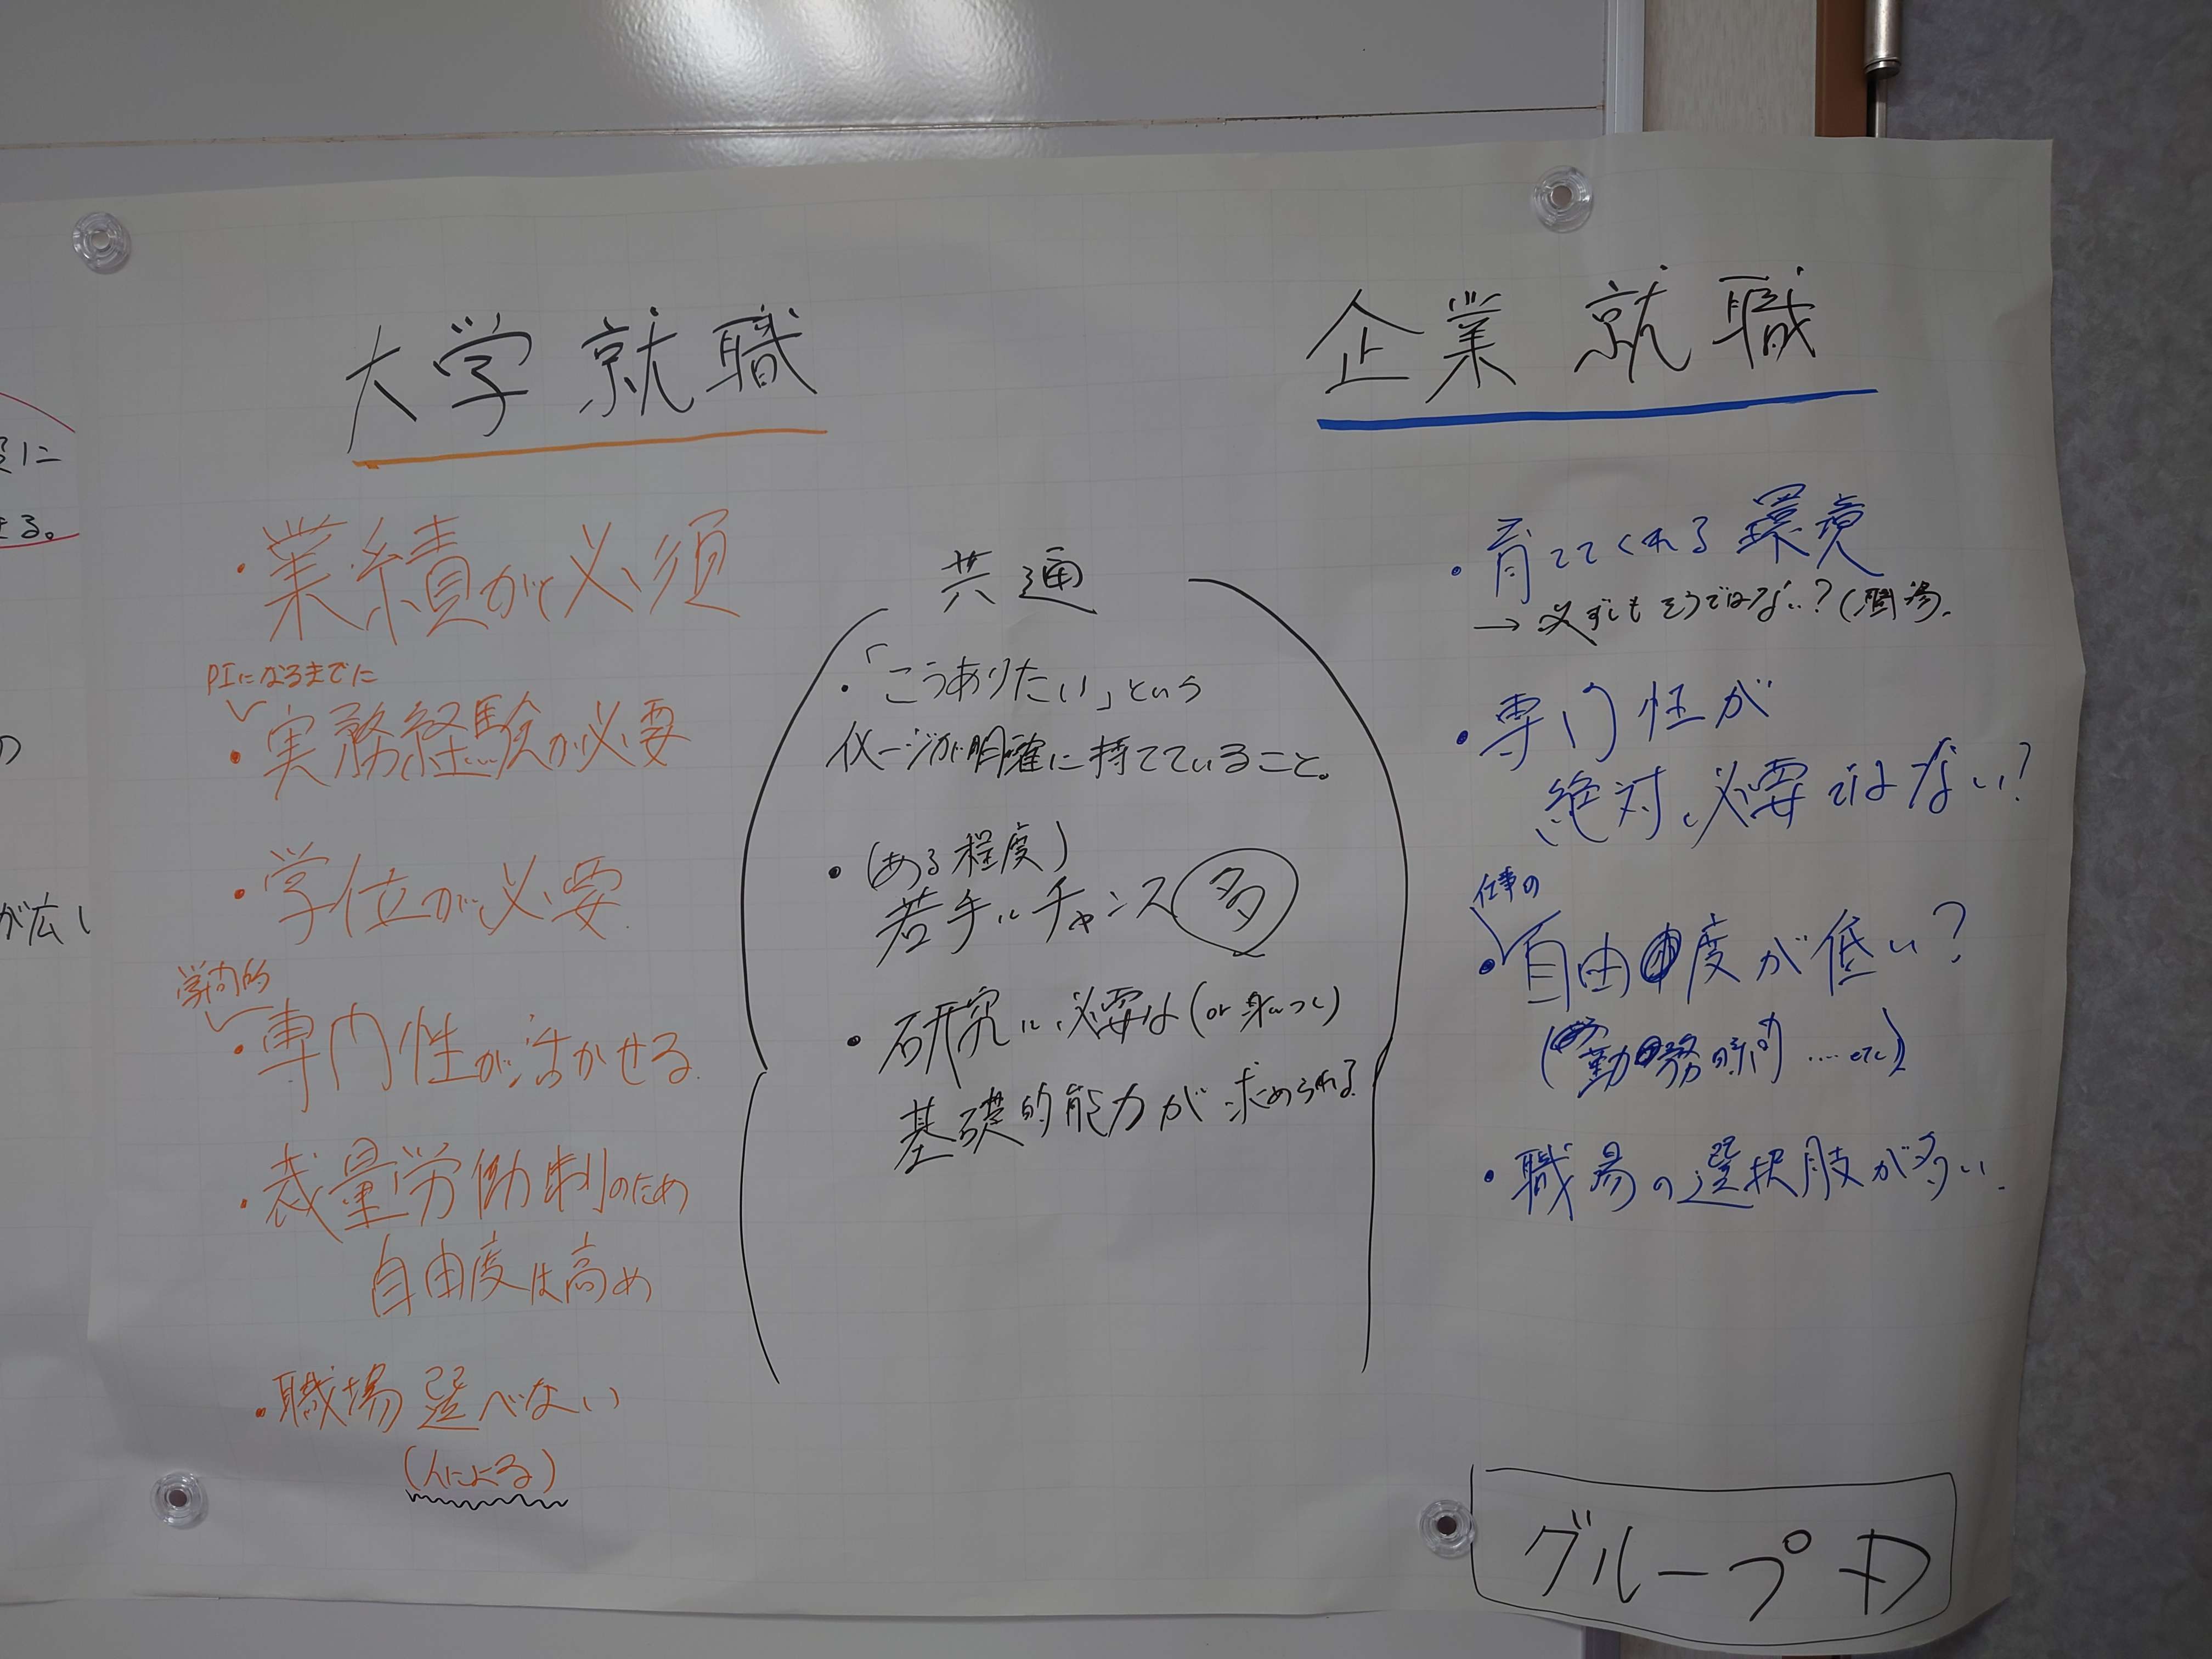 大学就職
・業績が必須
PIになるまでに
・実務経験が必要
・学位が必要
学問的
・専門性が活かせる
・裁量労働制のため
自由度は高め
・職場選べない
(人による)
共通
・「こうありたい」という
イメージが明確に持てていること。
・(ある程度)
若手にチャンス多
・研究に必要な(or 身につく)
基礎的能力が求められる
企業就職
・育ててくれる環境
→必ずしもそうではない?(職場、
・専門性が
絶対必要ではない?
仕事の
・自由度が低い?
(勤務時間 .... etc)
・職場の選択肢が多い
グループD
に
る。
の
が広い